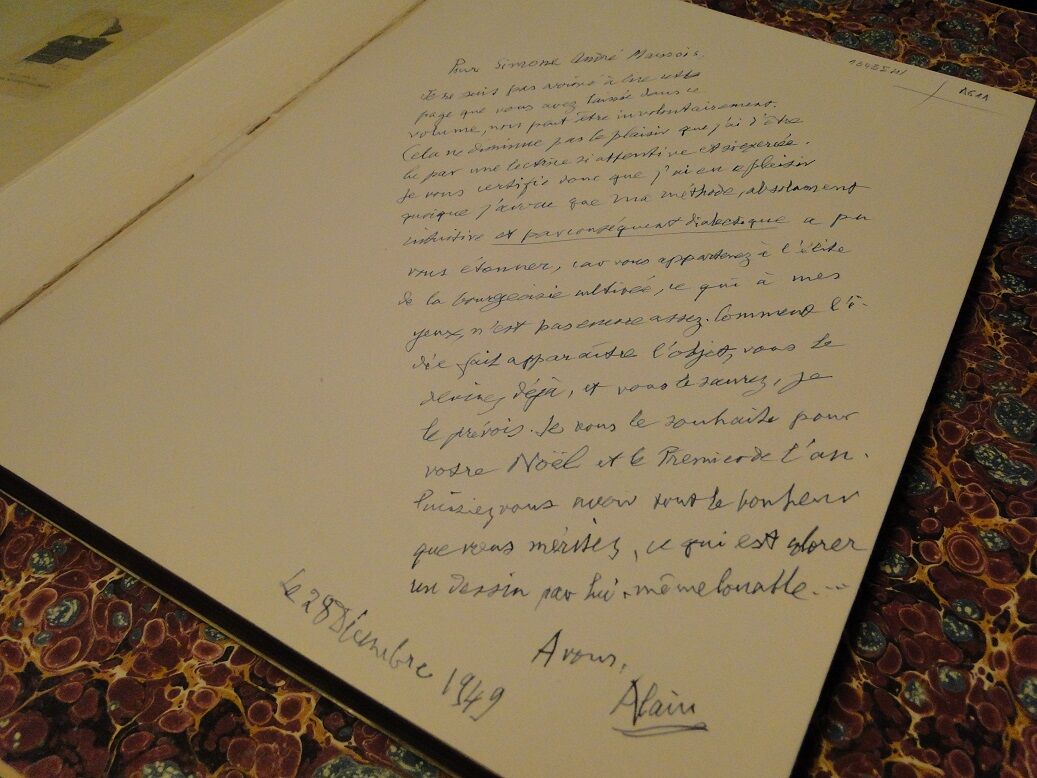 Pour Simone André Maurois,
Je ne suis pas arrivé à lire cette
page que vous avez laissée dans ce
volume, non peut être involontairement.
Cela ne diminue pas le plaisir que j'ai d'être
lu par une lectrice si attentive et si exercée.
Je vous certifie donc que j'ai eu ce plaisir
quoique j'avoue que ma méthode, absolument
intuitive et par conséquent dialectique a pu
vous étonner, car vous appartenez à l'élite
de la bourgeoisie cultivée, ce qui à mes
yeux, n'est pas encore assez. Comment l'i-
dée fait apparaître l'objet, vous le
devinez déjà, et vous le saurez, je
le prévois. Je vous le souhaite pour
votre Noël et le Premier de l'an.
Puissiez vous avoir tout le bonheur
que vous méritez, ce qui est
un dessin par lui-même louable...
A vous,
Alain
Le 28 Décembre 1949